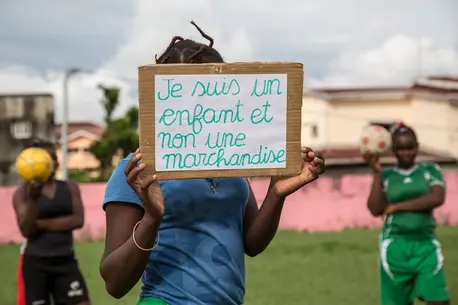 Je suis un
enfant et
non une
marchandise